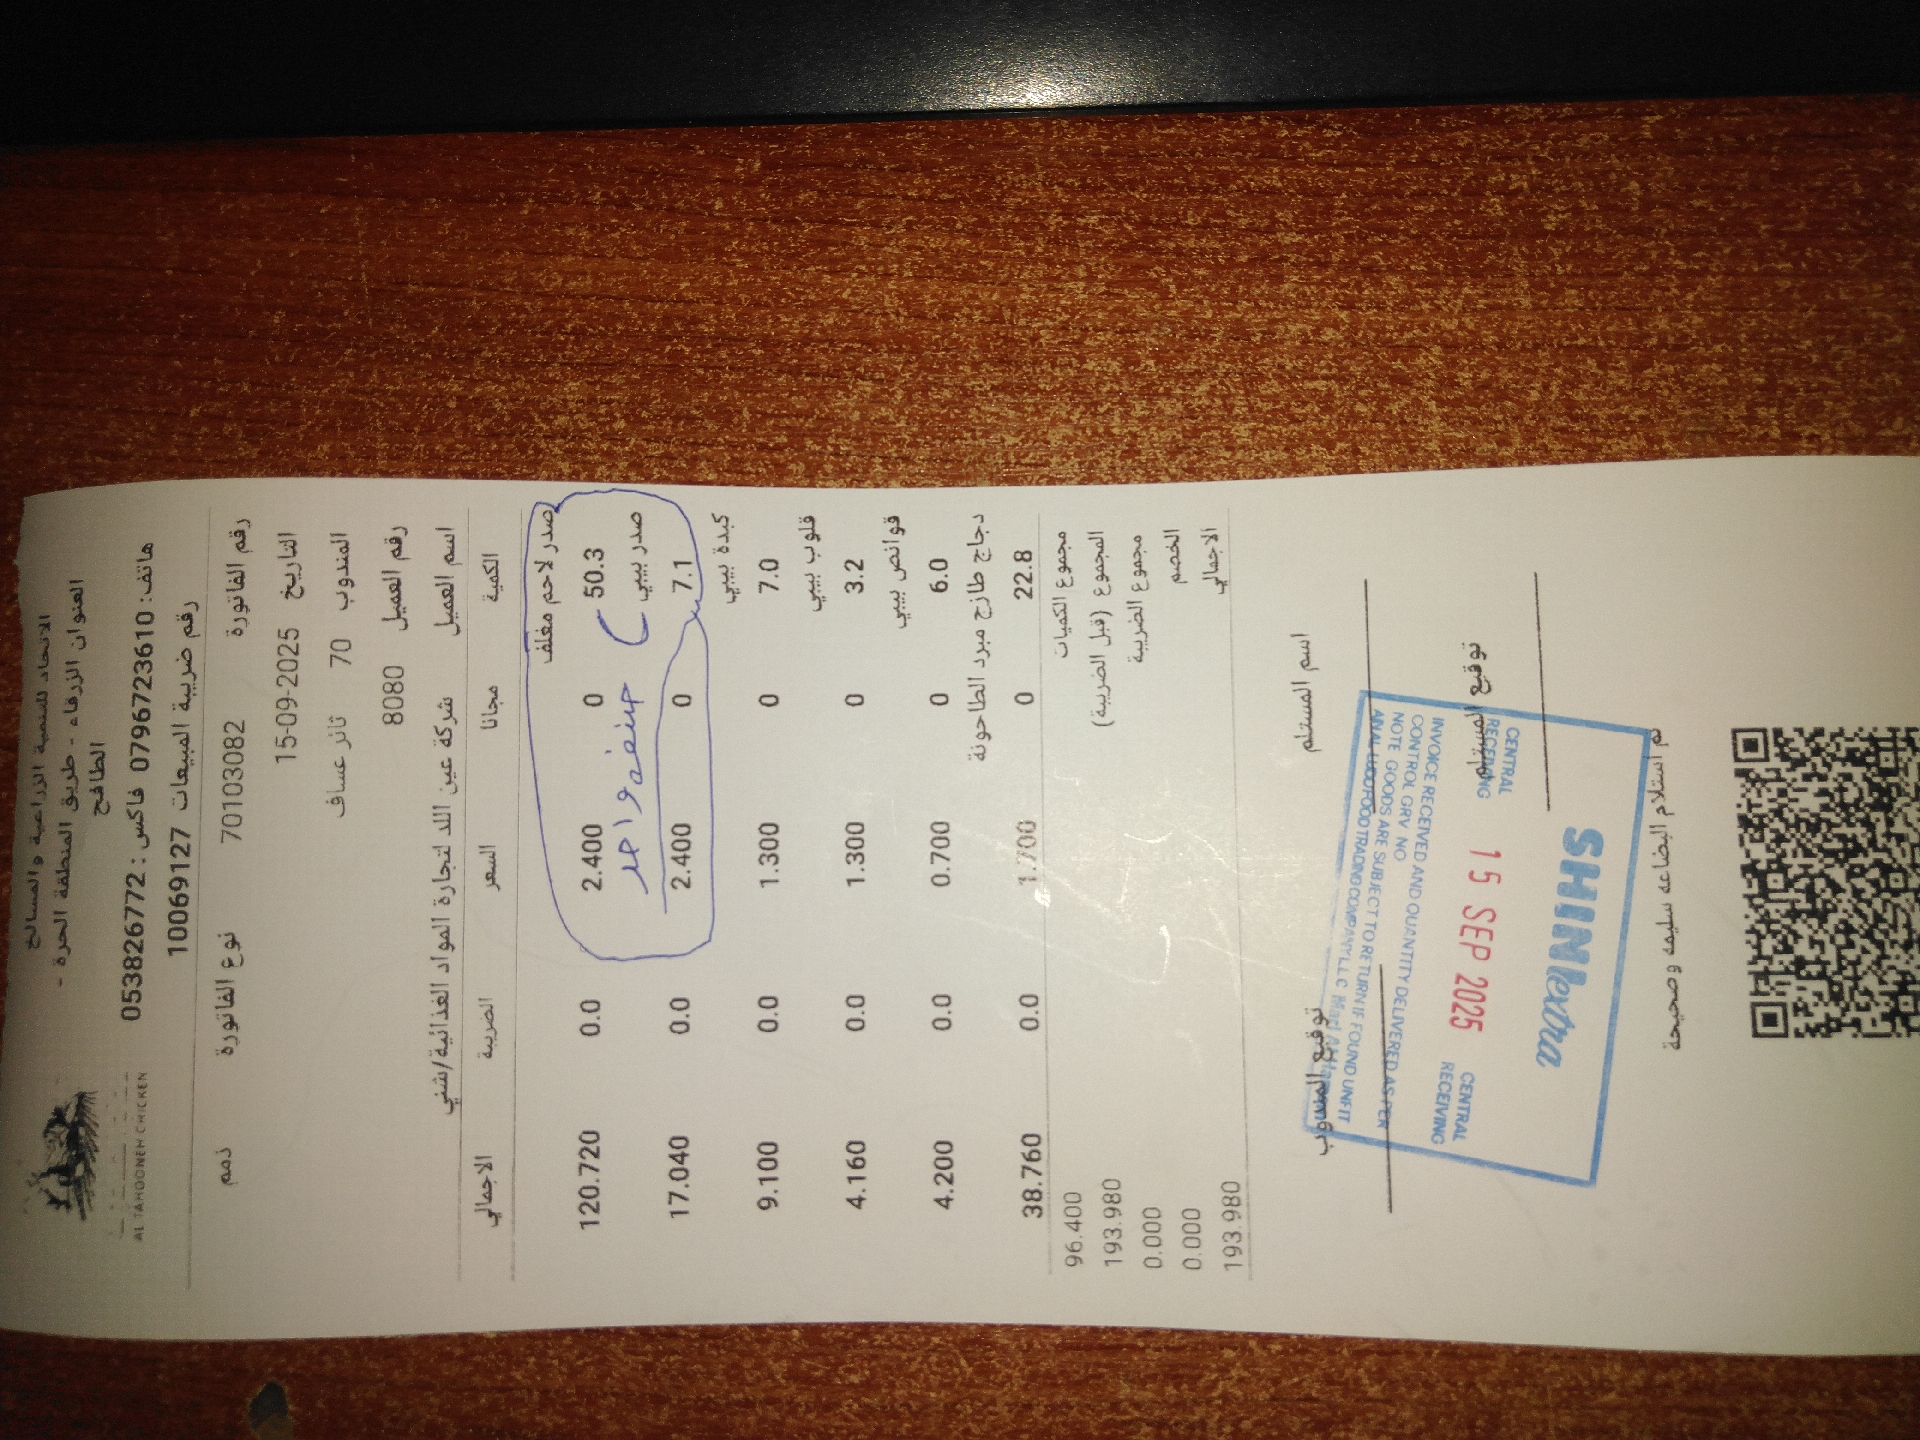 AL TAHOONEH CHICKEN
الاتحاد للتنمية الزراعية والمسالخ
العنوان الزرقاء - طريق المنطقة الحرة -
الطافح
هاتف: 0796723610 فاكس: 053826772
رقم ضريبة المبيعات 10069127
رقم الفاتورة 70103082 نوع الفاتورة ذمم
التاريخ 15-09-2025
المندوب 70 ثائر عساف
رقم العميل 8080
اسم العميل شركة عين اللد لتجارة المواد الغذائية/شني
الكمية مجانا السعر الضريبة الاجمالي
صدر لاحم مغلف
50.3 0 2.400 0.0 120.720
صنف واحد
صدر بيبي
7.1 0 2.400 0.0 17.040
كبدة بيبي
7.0 0 1.300 0.0 9.100
قلوب بيبي
3.2 0 1.300 0.0 4.160
قوانص بيبي
6.0 0 0.700 0.0 4.200
دجاج طازج مبرد الطاحونة
22.8 0 1.700 0.0 38.760
مجموع الكميات 96.400
المجموع (قبل الضريبة) 193.980
مجموع الضريبة 0.000
الخصم 0.000
الاجمالي 193.980
اسم المستلم
توقيع المندوب
توقيع المستلم
SHINIextra
CENTRAL RECEIVING 15 SEP 2025 CENTRAL RECEIVING
INVOICE RECEIVED AND QUANTITY DELIVERED AS PER
CONTROL GRV NO
NOTE GOODS ARE SUBJECT TO RETURN IF FOUND UNFIT
FOOD TRADING COMPANY L.L.C
تم استلام البضاعه سليمه وصحيحة